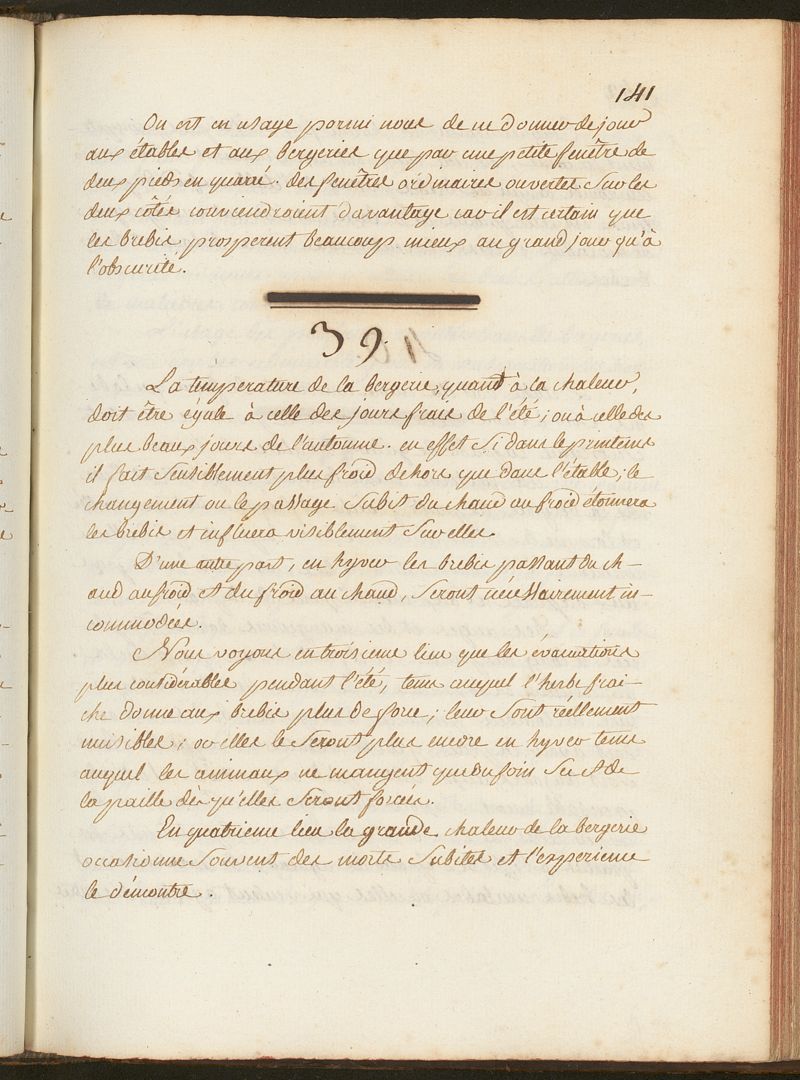 141
On est en usage parmi nous de ne donner de jour
aux étables et aux bergeries que par une petite fenêtre de
deux pieds en quarré. des fenêtres ordinaires ouvertes sur les
deux côtés conviendroient davantage car il est certain que
les brebis prosperent beaucoup mieux au grand jour qu'à
l'obscurité.
39.
La température de la bergerie, quant à la chaleur,
doit être égale à celle des jours frais de l'été; ou à celle des
plus beaux jours de l'automne. en effet si dans le printems
il fait sensiblement plus froid dehors que dans l'étable, le
changement ou le passage subit du chaud au froid étonnera
les brebis et influera visiblement sur elles.
D'une autre part, en hyver les brebis passant du ch-
aud au froid et du froid au chaud, seront nécessairement in-
commodées.
Nous voyons en troisieme lieu que les évacuations
plus considérables pendant l'été, tems auquel l'herbe frai-
che donne aux brebis plus de force; leur sont réellement
nuisibles; or elles le seront plus encore en hyver tems
auquel les animaux ne mangent que du foin sec et de
la paille dès qu'elles seront forcées.
En quatrieme lieu la grande chaleur de la bergerie
occasionne souvent des morts subites et l'experience
le démontre.